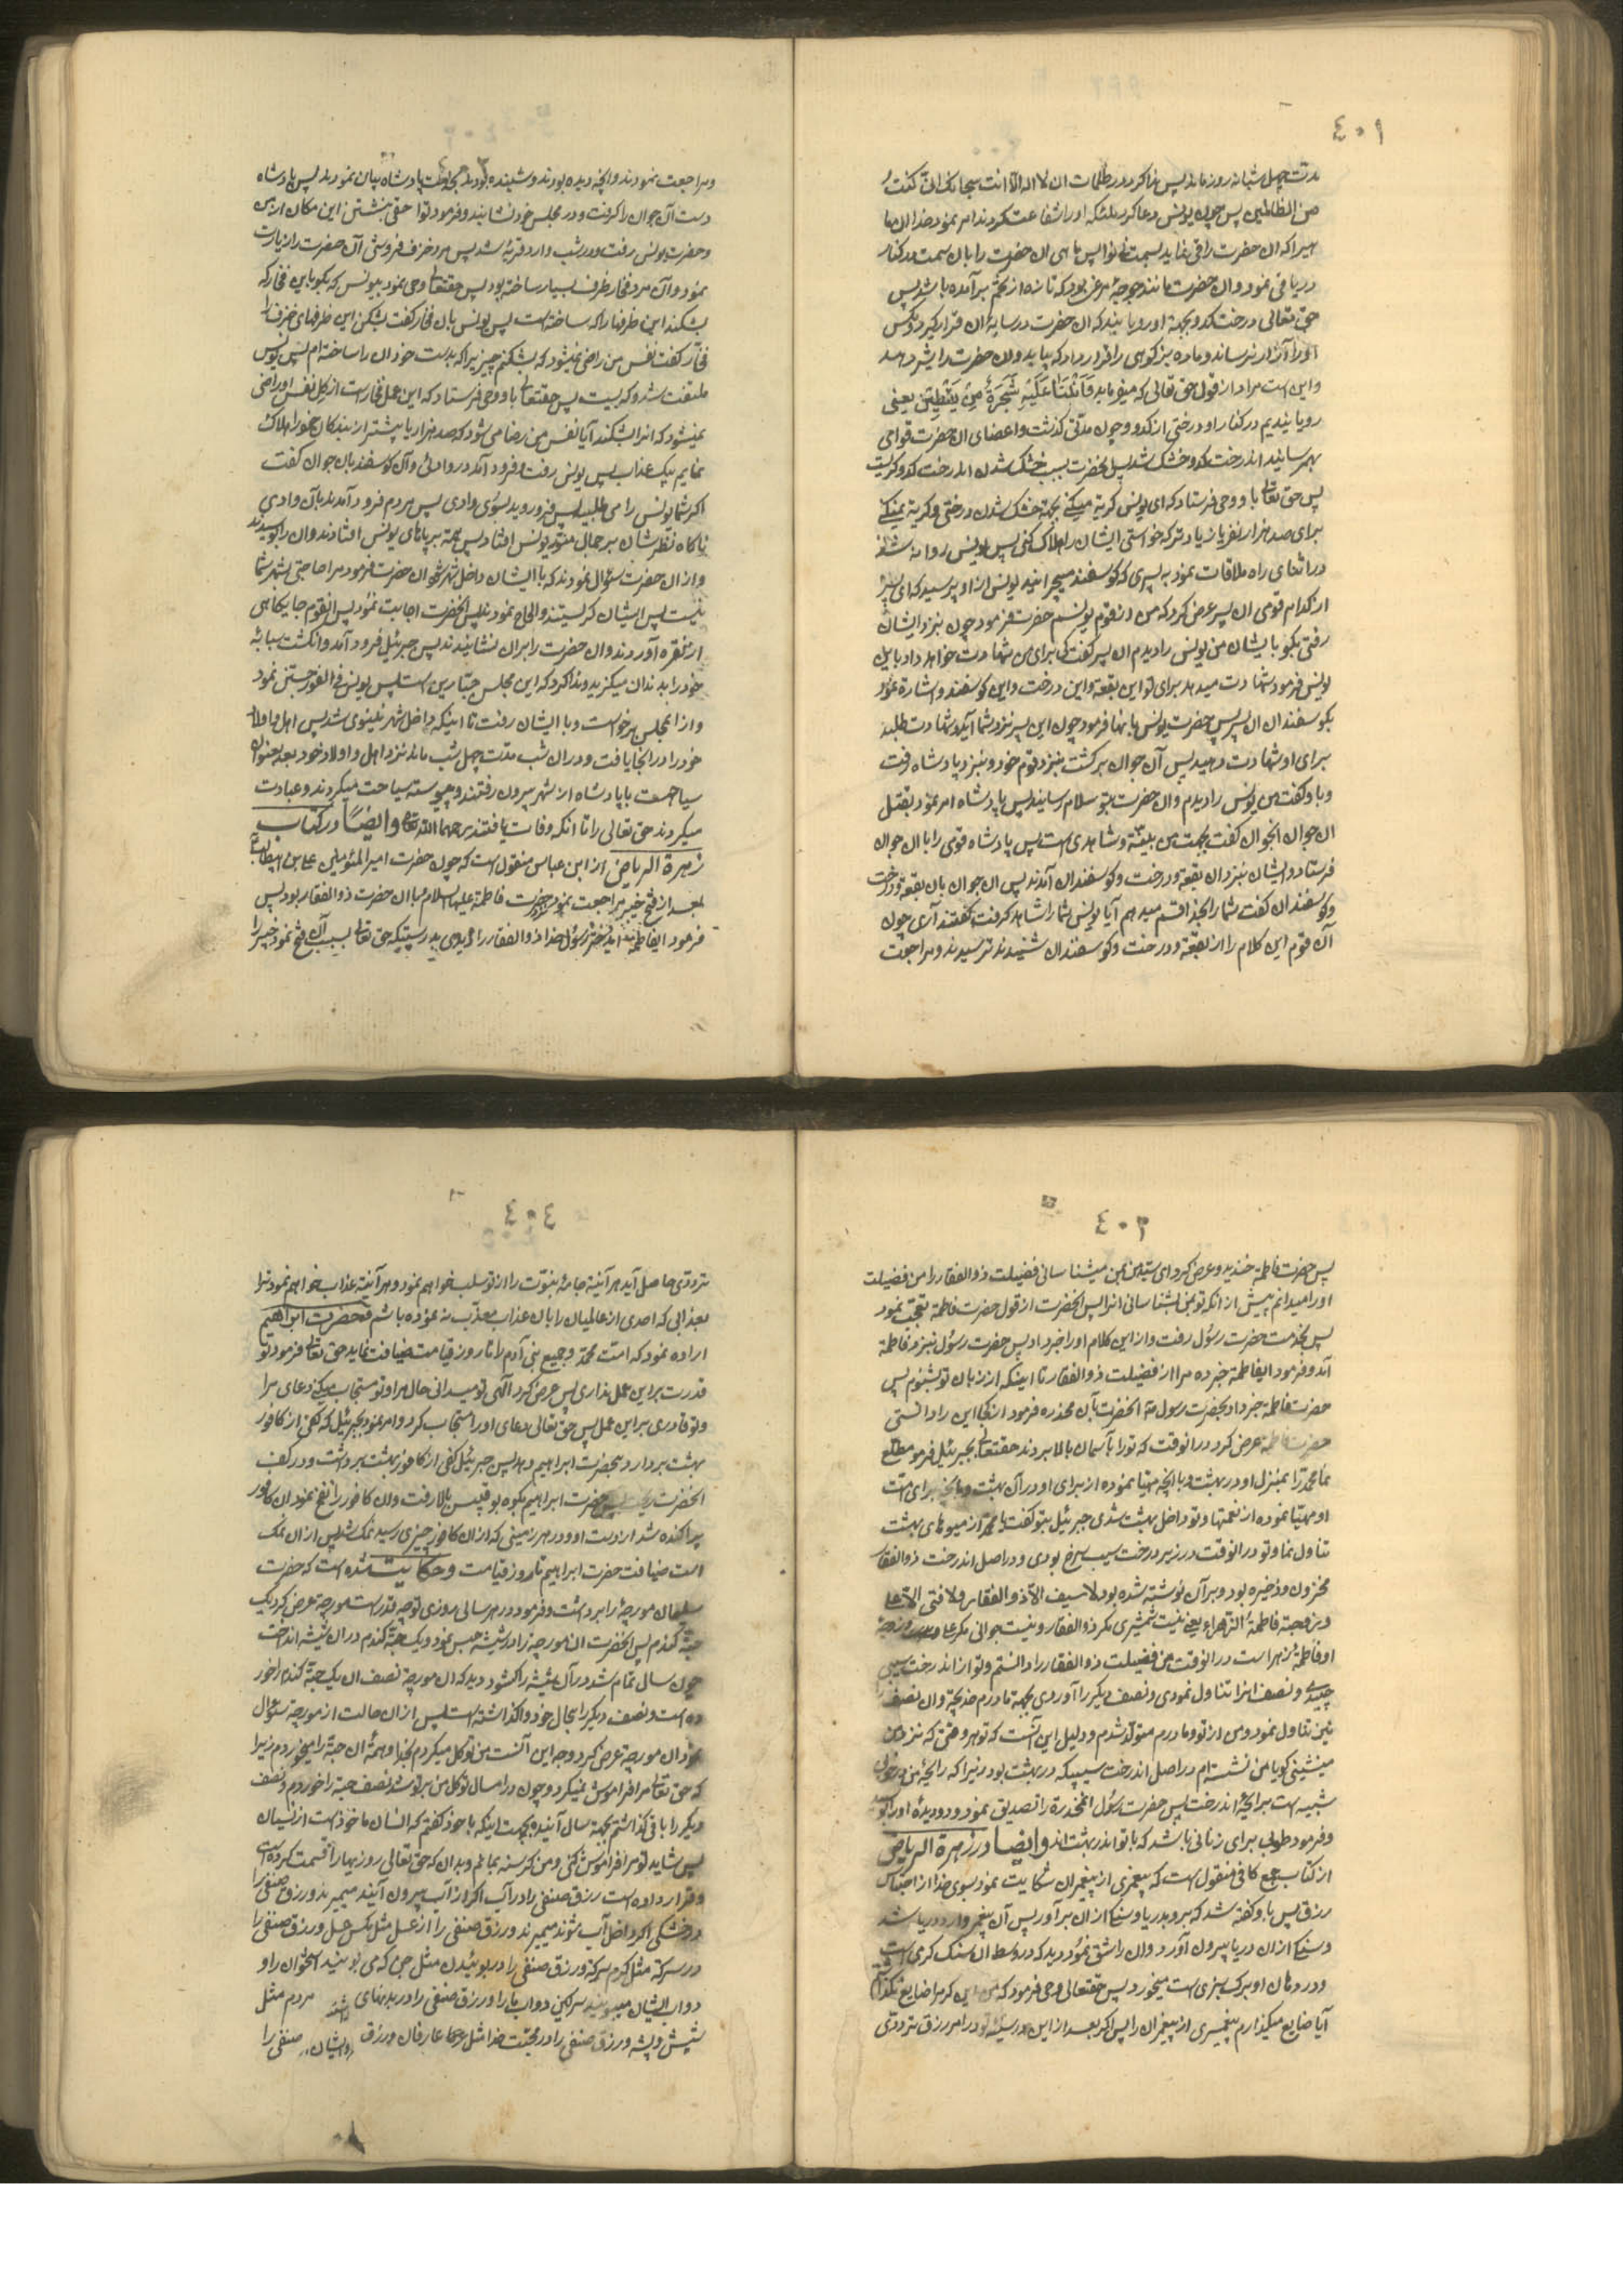 ٤٠١
مدت چهل شبانه روز ماند پس ندا کرد در ظلمات ان لا اله الا انت سبحانک انی کنت
من الظالمین پس چون یونس دعا کرد ملئکه او را شفاعت کردند امر نمود خدا ان ماهی
را که ان حضرت را قی نماید پس ماهی ان حضرت را بان سمت در کنار
دریا قی نمود و ان حضرت مانند جوجه مرغی بود که تازه از تخم برآمده باشد پس
حق تعالی درخت کدو بجهة او رویانید که ان حضرت در سایه ان قرار گیرد و مگس
او را آزار نرساند و ماده بز کوهی را قرار داد که بیاید و ان حضرت را شیر دهد
و این است مراد از قول حق تعالی که میفرماید فانبتنا علیه شجرة من یقطین یعنی
رویانیدیم در کنار او درختی از کدو و چون مدتی گذشت و اعضای ان حضرت قوامی
بهم رسانید ان درخت کدو خشک شد پس انحضرت بسبب خشک شدن ان درخت کدو گریست
پس حق تعالی باو وحی فرستاد که ای یونس گریه میکنی بجهة خشک شدن درختی و گریه نمیکنی
برای صد هزار نفر یا زیادتر که خواستی ایشان را هلاک کنی پس یونس روانه شد
در اثنای راه ملاقات نمود به پسری که گوسفند میچرانید یونس از او پرسید که ای پسر
از کدام قومی ان پسر عرض کرد که من از قوم یونسم حضرت فرمود چون بنزد ایشان
رفتی بگو بایشان من یونس را دیدم ان پسر گفت کی برای من شهادت خواهد داد باین
یونس فرمود شهادت میدهد برای تو این بقعه و این درخت و این گوسفند و اشاره نمود
بگوسفندان ان پسر پس حضرت یونس بانها فرمود چون این پسر نزد شما آید و شهادت طلبد
برای او شهادت دهید پس آن جوان برگشت بنزد قوم خود و بنزد پادشاه رفت
و باو گفت من یونس را دیدم و ان حضرت بتو سلام رسانید پس پادشاه امر نمود بقتل
ان جوان انجوان گفت بجهت من بینه و شاهدی است پس پادشاه قومی را با ان جوان
فرستاد و ایشان بنزد ان بقعه و درخت و گوسفندان آمدند پس ان جوان بان بقعه و درخت
و گوسفندان گفت شما را بخدا قسم میدهم آیا یونس شما را شاهد گرفت گفتند آری چون
آن قوم این کلام را از بقعه و درخت و گوسفندان شنیدند ترسیدند و مراجعت
و مراجعت نمودند و انچه دیده بودند و شنیده بودند بجهت پادشاه بیان نمودند پس پادشاه
دست آن جوان را گرفت و در مجلس خود نشانید و فرمود تو احقی بنشستن این مکان از من
و حضرت یونس رفت و در شب وارد قریه شد پس مرد خزف فروشی آن حضرت را زیارت
نمود و آن مرد فخار ظرف بسیار ساخته بود پس حقتعالی وحی نمود بیونس که بگو باین فخار که
بشکند این ظرفها را که ساخته است پس یونس بان فخار گفت بشکن این ظرفهای خزف را
فخار گفت نفس من راضی نمیشود که بشکنم چیزیرا که بدست خود ان را ساخته ام پس یونس
ملتفت شد و گریست پس حقتعالی باو وحی فرستاد که این عمل فخار است از گل نفس او راضی
نمیشود که انرا بشکند آیا نفس من رضا می شود که صد هزار یا بیشتر از بندگان خود را هلاک
نمایم بیک عذاب پس یونس رفت و فرود آمد در وادی و آن گوسفندبان جوان گفت
اگر شما یونس را می طلبید پس فرو روید بسوی وادی پس مردم فرود آمدند بآن وادی
ناگاه نظر ایشان بر جمال منور یونس افتاد پس همه بر پاهای یونس افتادند و ان را بوسیدند
و از ان حضرت سؤال نمودند که با ایشان داخل شهر شود ان حضرت فرمود مرا حاجتی بشهر شما
نیست پس ایشان گریستند و الحاح نمودند پس انحضرت اجابت نمود پس انقوم جایگاهی
از نقره آوردند و ان حضرت را بر ان نشانیدند پس جبرئیل فرود آمد و انگشت سبابه
خود را بدندان میگزید و ندا کرد که این مجلس جبارین است پس یونس فی الفور جستن نمود
و از انمجلس برخواست و با ایشان رفت تا اینکه داخل شهر نینوی شد پس اهل و اولاد
خود را در انجا یافت و در ان شب مدت چهل شب ماند نزد اهل و اولاد خود بعد بعنوان
سیاحت با پادشاه از شهر بیرون رفتند و پیوسته سیاحت میکردند و عبادت
میکردند حق تعالی را تا انکه وفات یافتند رحمهما الله تعالی و ایضا در کتاب
زهرة الریاض از ابن عباس منقول است که چون حضرت امیر المؤمنین علی بن ابیطالب
بعد از فتح خیبر مراجعت نمود بنزد حضرت فاطمة علیها السلام با ان حضرت ذو الفقار بود پس
فرمود ایفاطمه ای دختر رسول خدا ذو الفقار را بدرستیکه حق تعالی بسبب آن فتح نمود خیبر را
٤٠٣
پس حضرت فاطمة خندید و عرض کرد ای سید من میشناسانی فضیلت ذو الفقار را من فضیلت
او را میدانم پیش از انکه تو بمن بشناسانی انرا پس انحضرت از قول حضرت فاطمة تعجب نمود
پس بخدمت حضرت رسول رفت و از این کلام او را خبر داد پس حضرت رسول بنزد فاطمة
آمد و فرمود ایفاطمة خبر ده مرا از فضیلت ذو الفقار تا اینکه از زبان تو بشنوم پس
حضرت فاطمة خبر داد بحضرت رسول انحضرت بآن مخدره فرمود از کجا این را دانستی
حضرت فاطمة عرض کرد در انوقت که تو را بآسمان بالا بردند حقتعالی بجبرئیل فرمود مطلع
نما محمد را بمنزل او در بهشت و بانچه مهیا نموده از برای او در آن بهشت و بانچه برای امت
او مهیا نموده از نعمتها و تو داخل بهشت شدی جبرئیل بتو گفت یا محمد از میوه های بهشت
تناول نما و تو در انوقت در زیر درخت سیب سرخ بودی و در اصل اندرخت ذو الفقار
مخزون و ذخیره بود و بر آن نوشته شده بود لا سیف الا ذو الفقار و لا فتی الا علی
و زوجته فاطمة الزهراء یعنی نیست شمشیری مگر ذو الفقار و نیست جوانی مگر علی و زوجهٔ
او فاطمهٔ زهرا است در انوقت من فضیلت ذو الفقار را دانستم و تو از اندرخت سیبی
چیدی و نصف انرا تناول نمودی و نصف دیگر را آوردی بجهة مادرم خدیجه و ان نصف
نیز تناول نمود و من از تو و مادرم متولد شدم و دلیل این آنست که تو هر وقتی که نزد من
مینشینی گویا من نشسته ام در اصل اندرخت سیبیکه در بهشت بود زیرا که رایحهٔ من
شبیه ست برایحهٔ اندرخت پس حضرت رسول انمخدرة را تصدیق نمود و دو دیدهٔ او را بوسید
و فرمود طوبی برای زنانی باشد که با تو اند در بهشت اند و ایضا در زهرة الریاض
از کتاب جمع کافی منقول است که پیغمبری از پیغمبران شکایت نمود بسوی خدا از احتباس
رزق پس باو گفته شد که برو بدریا و سنگی از ان برآور پس آن پیغمبر وارد دریا شد
و سنگی از ان دریا بیرون آورد و ان را شق نمود دید که در وسط ان سنگ کرمی است
و در دهان او برگ سبزی ست میخورد پس حقتعالی وحی فرمود که من این کرم را ضایع نگذارم
آیا ضایع میگذارم پیغمبری از پیغمبران را پس اگر بعد از این در سینه تو در امر رزق ترددی
٤٠٤
ترددی حاصل آید هر آئینه جامهٔ نبوت را از تو سلب خواهم نمود و هر آئینه عذاب خواهم نمود ترا
بعذابی که احدی از عالمیان را بان عذاب معذب ننموده باشم و حضرت ابراهیم
اراده نمود که امت محمد و جمیع بنی آدم را تا روز قیامت ضیافت نماید حق تعالی فرمود تو
قدرت بر این عمل نداری پس عرض کرد الهی تو میدانی حال مرا و تو مستجاب میکنی دعای مرا
و تو قادری بر این عمل پس حق تعالی دعای او را مستجاب کرد و امر نمود بجبرئیل که کفی از کافور
بهشت بردارد و بحضرت ابراهیم دهد پس جبرئیل کفی از کافور بهشت برداشت و در کف
انحضرت ریخت پس حضرت ابراهیم بکوه بو قبیس بالا رفت و ان کافور را نفخ نمود ان کافور
پراکنده شد از دست او و در هر زمینی که از ان کافور چیزی رسید نمک شد پس از ان نمک
است ضیافت حضرت ابراهیم تا روز قیامت و حکایت شده است که حضرت
سلیمان مورچهٔ را برداشت و فرمود در هر سالی روزی تو چه قدر ست مورچه عرض کرد یک
حبه گندم پس انحضرت ان مورچه را در شیشه حبس نمود و یک حبه گندم در ان شیشه انداخت
چون سال تمام شد در آن شیشه را گشود دید که ان مورچه نصف ان یک حبه گندم را خور
ده است و نصف دیگر را بحال خود واگذاشته است پس از ان حالت از مورچه سئوال
نمود ان مورچه عرض کرد وجه این آنست من توکل میکردم بخدا و همهٔ ان حبه را میخوردم زیرا
که حق تعالی مرا فراموش نمیکرد و چون در امسال توکل من بر تو شد نصف حبه را خوردم و نصف
دیگر را باقی گذاشتم بجهة سال آینده بجهت اینکه با خود گفتم که انسان ماخوذ است از نسیان
پس شاید تو مرا فراموش کنی و من گرسنه بمانم و بدان که حق تعالی روزیها را قسمت کرده است
و قرار داده ست رزق صنفی را در آب اگر از آب بیرون آیند میمیرند و رزق صنفی را
در خشکی اگر داخل آب شوند میمیرند و رزق صنفی را از عسل مثل مگس عسل و رزق صنفی را
در سرکه مثل کرم سرکه و رزق صنفی را در بوئیدن مثل جن که می بویند استخوان را و
دواب ایشان میبویند سرگین دواب ما را و رزق صنفی را در بدنهای مردم مثل
شپش و پشه و رزق صنفی را در محبت خدا مثل عارفان و رزق صنفی را